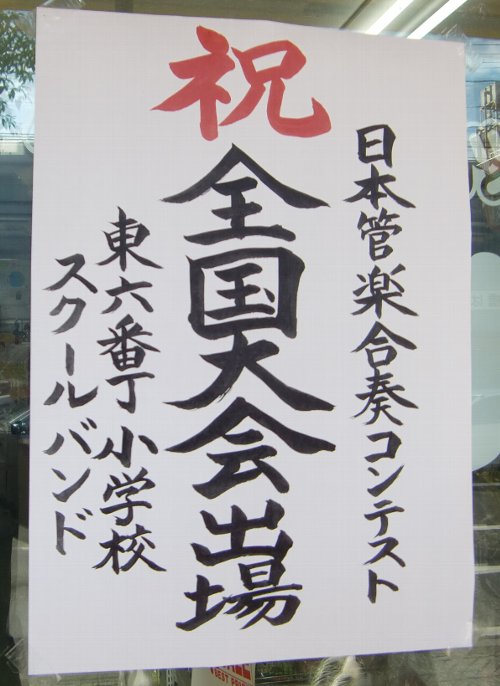 祝
日本管楽合奏コンテスト
全国大会出場
東六番丁小学校
スクールバンド